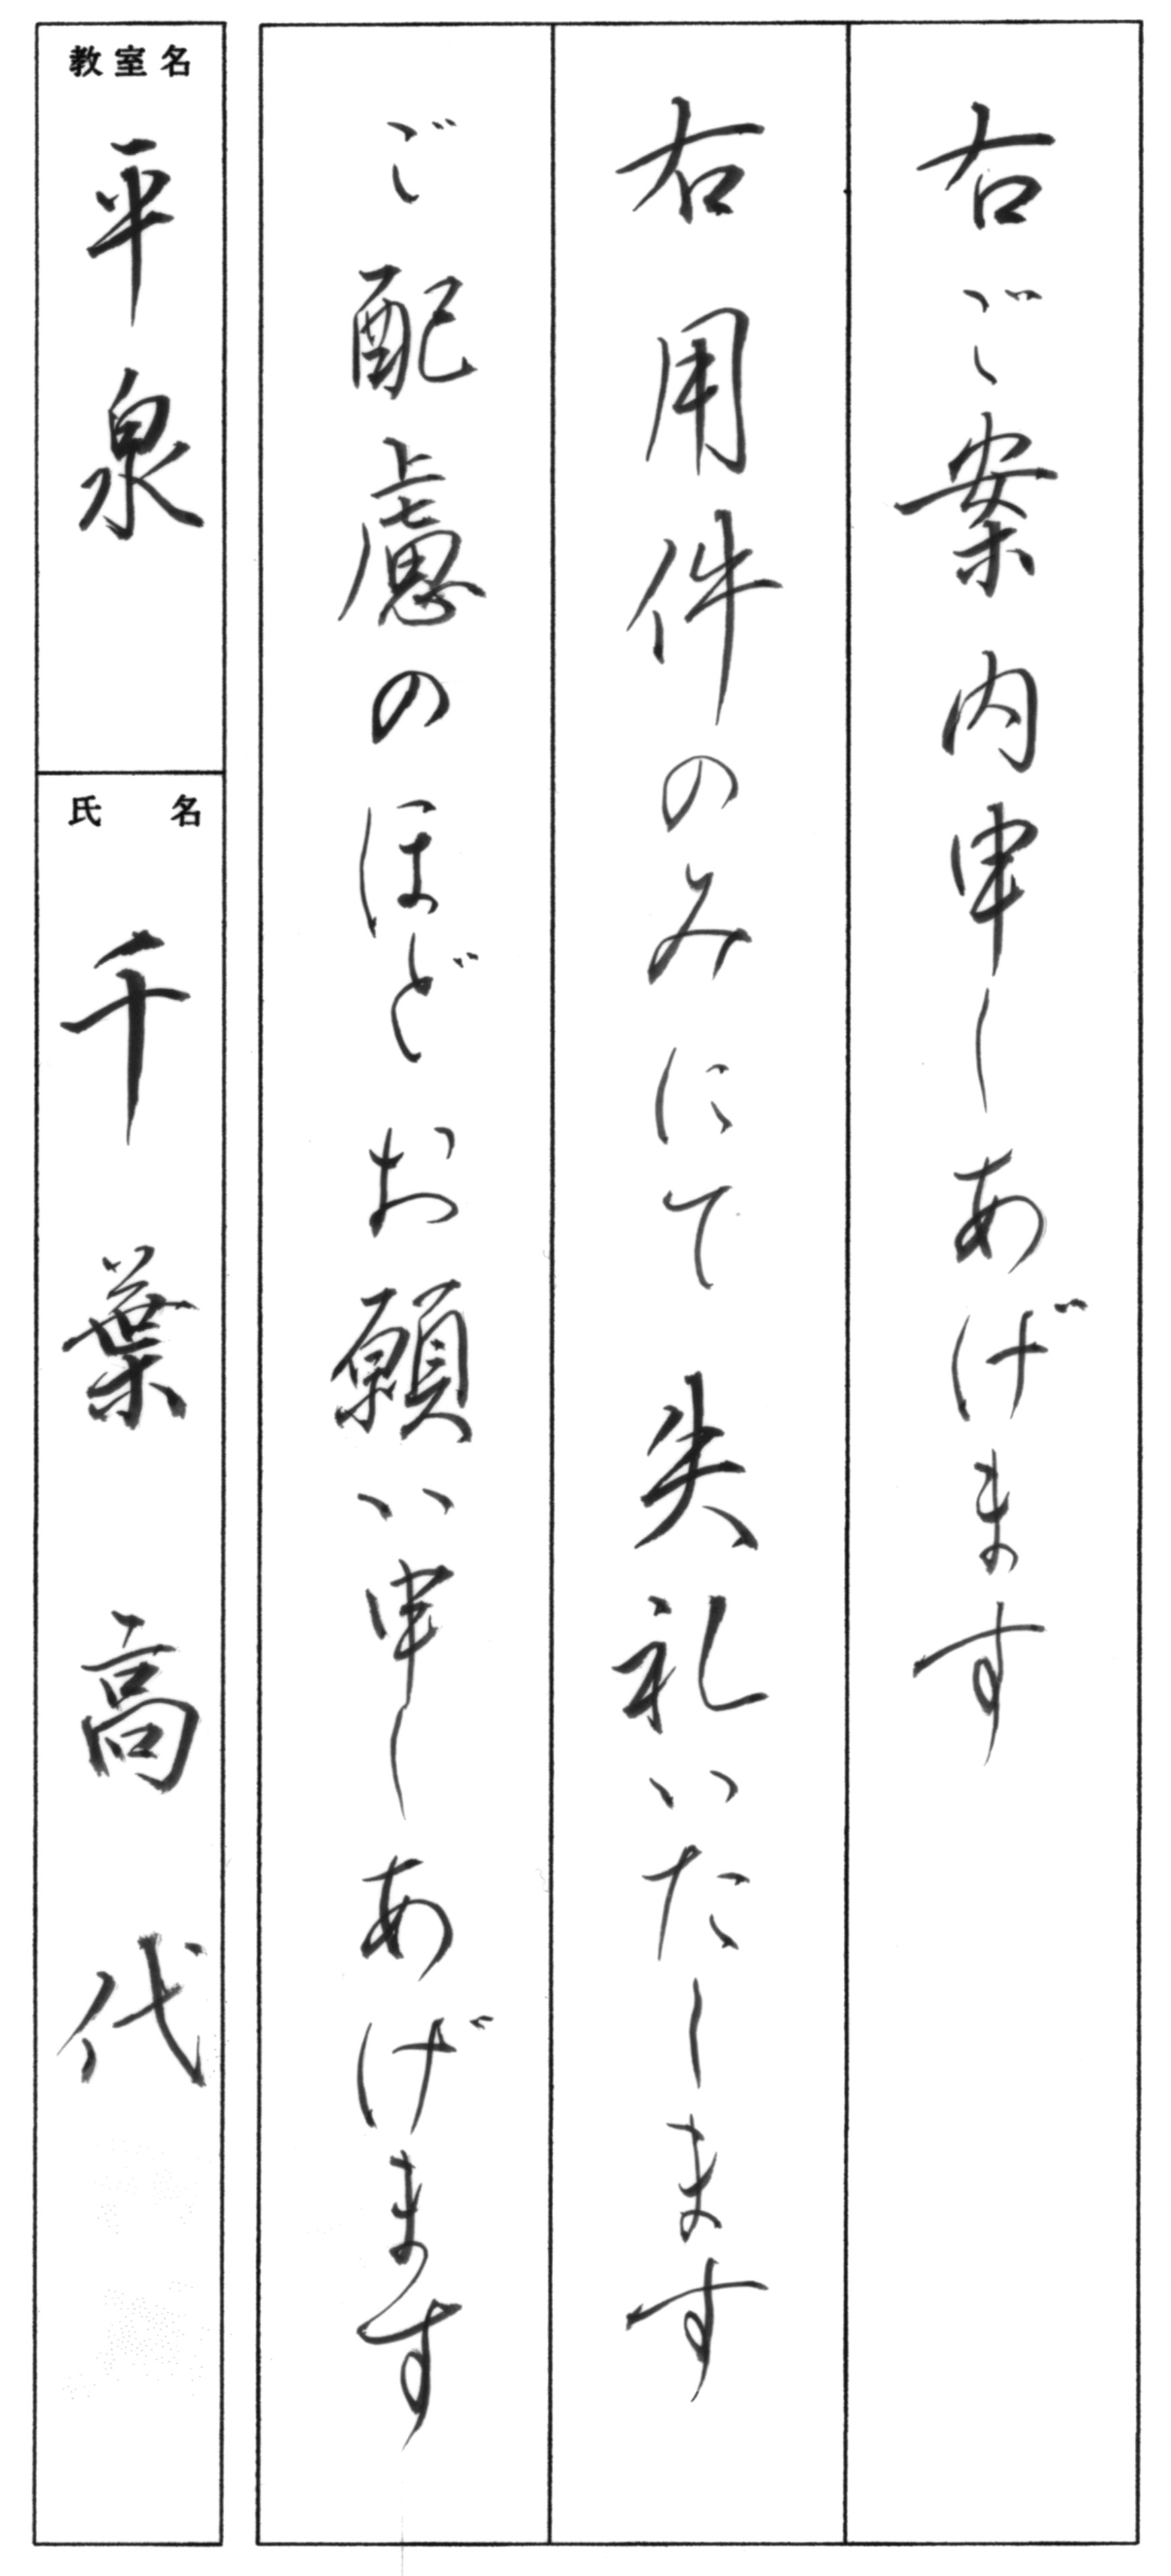 右ご案内申しあげます
右用件のみにて失礼いたします
ご配慮のほどお願い申しあげます
教室名
平泉
氏名
千葉高代